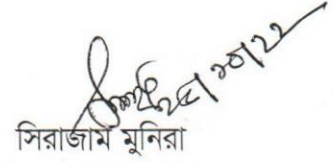 ২৫/১০/২২
সিরাজাম মুনিরা